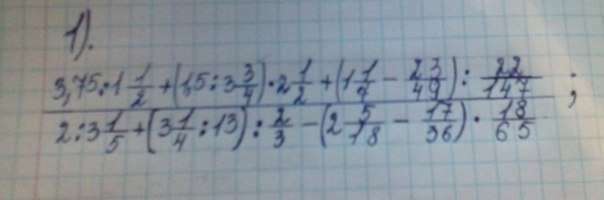 1).
3,75:1 1/2 + (1,5:3 3/4)·2 1/2 + (1 1/7 - 23/49) : 22/147
2:3 1/5 + (3 1/4 :13) : 2/3 - (2 5/18 - 17/36) · 18/65 ;